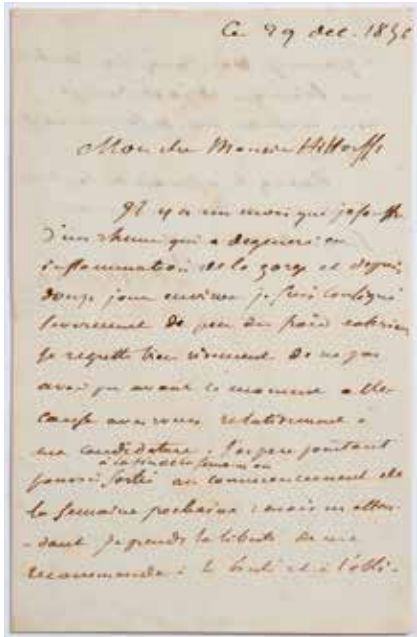 Ce 29 dec. 185
Mon cher Monsieur Hittorff
Il y a un mois que je souffre
d'un rhume qui a degeneré en
inflammation de la gorge et depuis
douze jours environ je suis consigné
severement de peur du froid exterieur
je regrette bien vivement de ne pas
avoir pu avant ce moment aller
causer avec vous relativement à
ma candidature. J'espere pourtant
à la fin de la semaine ou
pouvoir sortir au commencement de
la semaine prochaine mais en atten-
-dant je prends la liberté de me
recommander à la bonté et à l'obli-